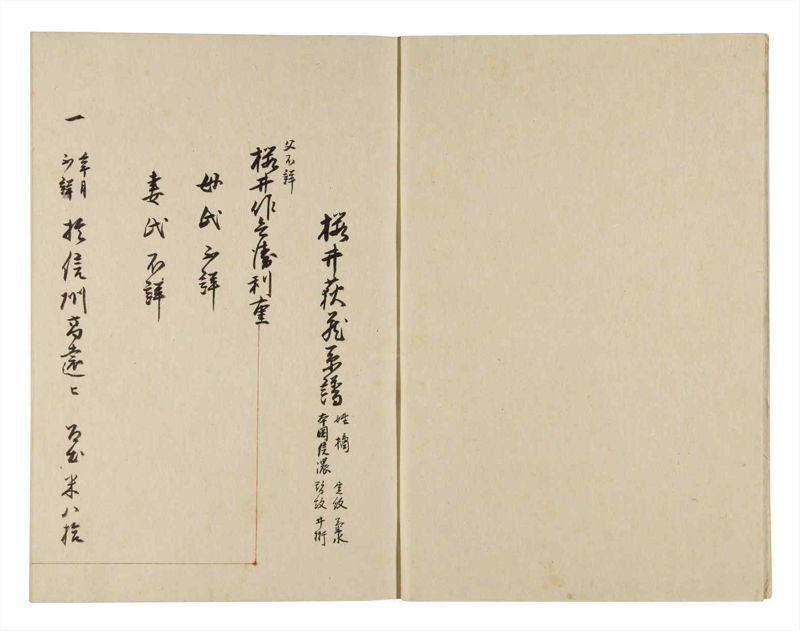 桜井荻花系譜
姓橘 定紋
本国信濃 替紋井桁
父不詳
桜井作兵衛利重
母氏不詳
妻氏不詳
一 年月不詳 於信州高遠 米八拾